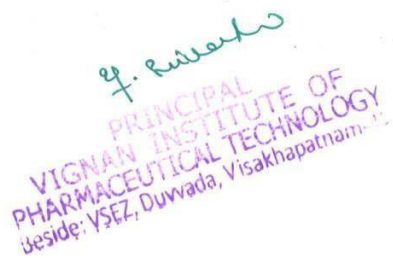 PRINCIPAL
VIGNAN INSTITUTE OF
PHARMACEUTICAL TECHNOLOGY
Beside; VSEZ, Duvvada, Visakhapatnam